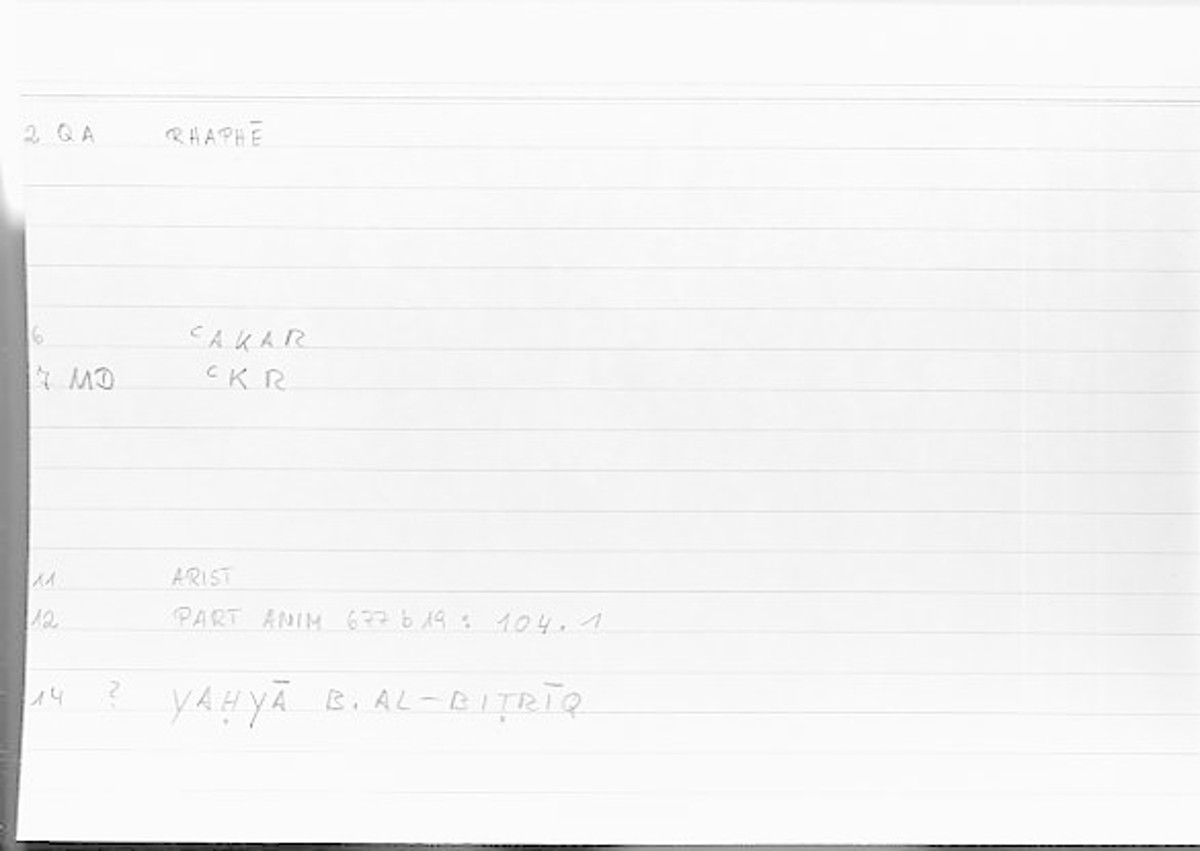 2 QA RHAPHĒ
6 ᶜAKAR
7 MD ᶜKR
11 ARIST
12 PART ANIM 677 b 19 : 104.1
14 ? YAḤYĀ B. AL-BIṬRĪQ